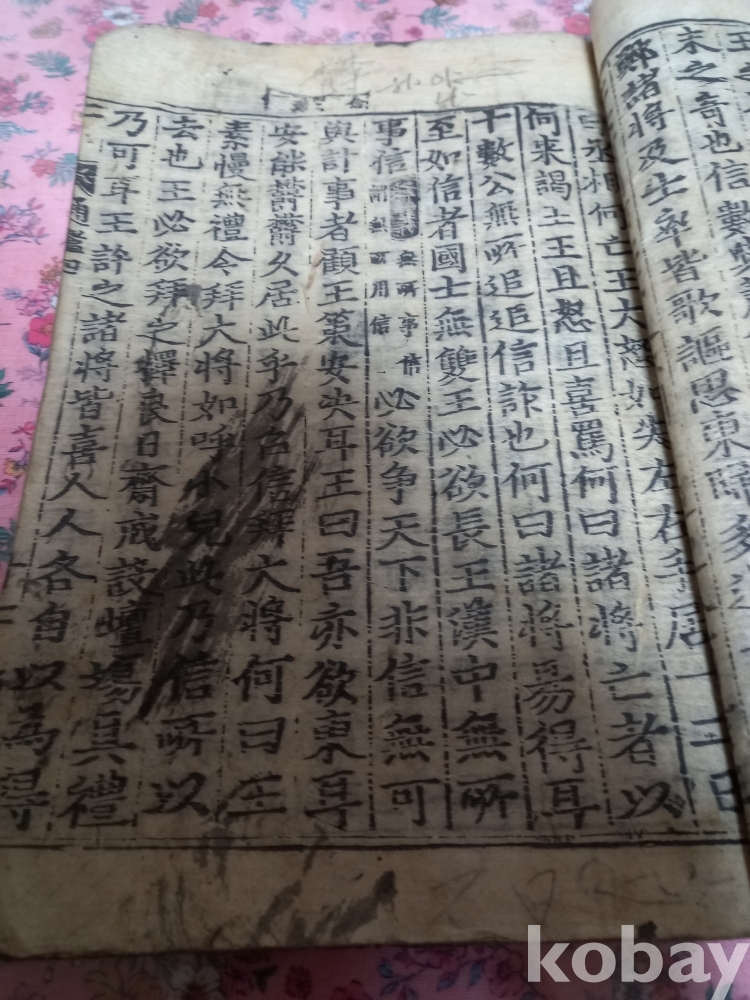 末之奇也信數
鄭諸將及士卒皆歌謳思東歸多道
丞相何亡王大怒如失左右手居一二日
何来謁上王且怒且喜罵何曰諸將亡者以
十數公無所追追信詐也何曰諸將易得耳
至如信者國士無雙王必欲長王漢中無所
事信 無所事信 謂無所用信 必欲争天下非信無可
與計事者顧王策安决耳王曰吾亦欲東耳
安能鬱鬱久居此乎乃召信拜大將何曰王
素慢無禮今拜大將如呼小兒此乃信所以
去也王必欲拜之擇良日齋戒設壇場具禮
乃可耳王許之諸將皆喜人人各自以為得
通鑑四
kobay